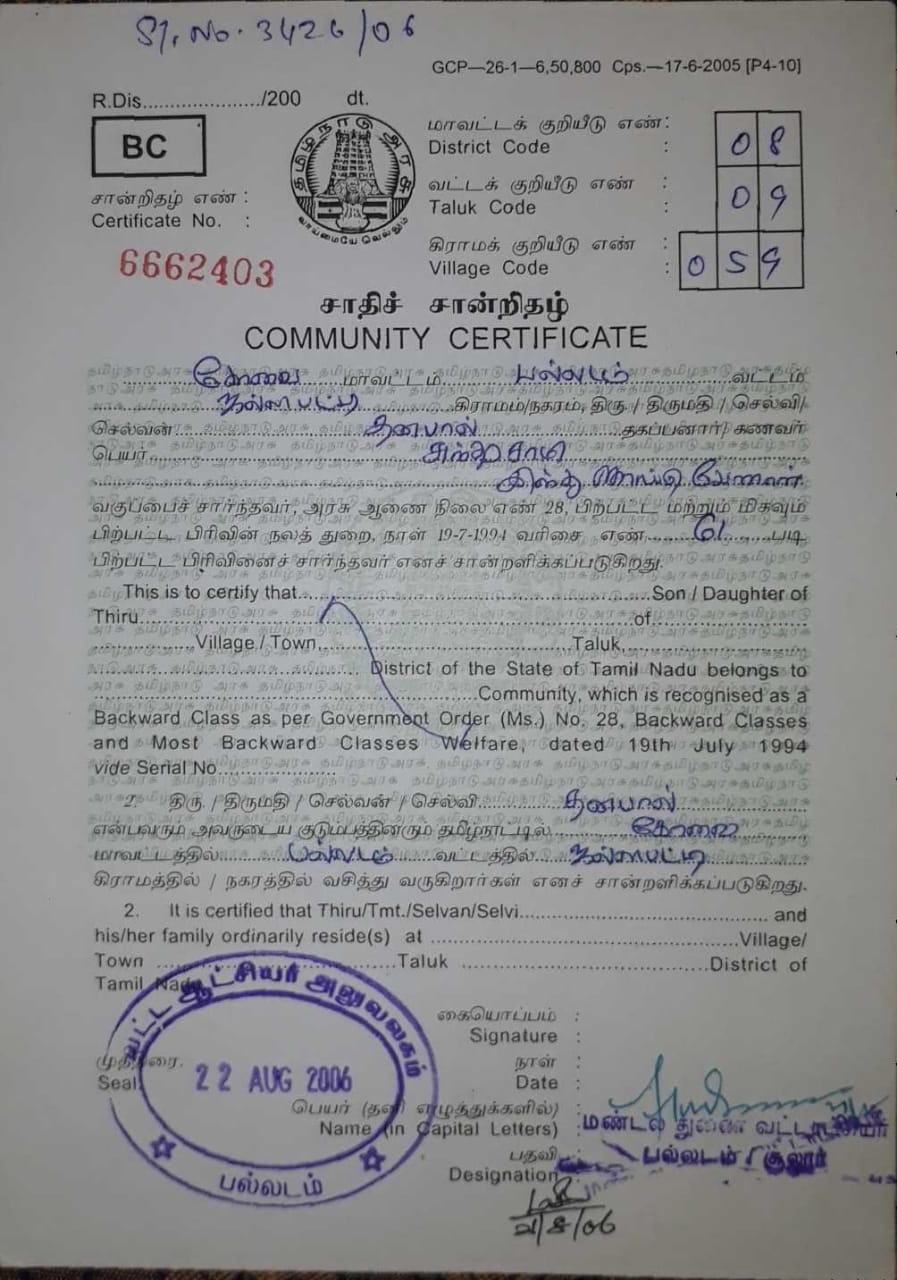 Sl. No. 3426/06
GCP—26-1—6,50,800 Cps.—17-6-2005 [P4-10]
R.Dis...................../200 dt.
BC
தமிழ்நாடு அரசு
வாய்மையே வெல்லும்
மாவட்டக் குறியீடு எண் :
District Code : 08
வட்டக் குறியீடு எண் :
Taluk Code : 09
கிராமக் குறியீடு எண் :
Village Code : 059
சான்றிதழ் எண் :
Certificate No. :
6662403
சாதிச் சான்றிதழ்
COMMUNITY CERTIFICATE
கோவை மாவட்டம் பல்லடம் வட்டம்
கிராமம்/நகரம், திரு / திருமதி / செல்வி/
செல்வன் தனபால் தகப்பனார்/ கணவர்
பெயர்
இந்து
வகுப்பைச் சார்ந்தவர், அரசு ஆணை நிலை எண் 28, பிற்பட்ட மற்றும் மிகவும்
பிற்பட்ட பிரிவின் நலத் துறை, நாள் 19-7-1994 வரிசை எண் படி
பிற்பட்ட பிரிவினைச் சார்ந்தவர் எனச் சான்றளிக்கப்படுகிறது.
This is to certify that..........Son / Daughter of
Thiru..........of..........
..........Village / Town,..........Taluk,..........
.......... District of the State of Tamil Nadu belongs to
..........Community, which is recognised as a
Backward Class as per Government Order (Ms.) No. 28, Backward Classes
and Most Backward Classes Welfare, dated 19th July 1994
vide Serial No..........
2. திரு. / திருமதி / செல்வன் / செல்வி தனபால்
என்பவரும் அவருடைய குடும்பத்தினரும் தமிழ்நாட்டில் கோவை
மாவட்டத்தில் பல்லடம் வட்டத்தில்
கிராமத்தில் / நகரத்தில் வசித்து வருகிறார்கள் எனச் சான்றளிக்கப்படுகிறது.
2. It is certified that Thiru/Tmt./Selvan/Selvi.......... and
his/her family ordinarily reside(s) at ..........Village/
Town ..........Taluk ..........District of
Tamil Nadu
வட்ட ஆட்சியர் அலுவலகம்
22 AUG 2006
பல்லடம்
கையொப்பம் :
Signature :
முத்திரை.
Seal
நாள் :
Date :
பெயர் (தனி எழுத்துக்களில்) :
Name (in Capital Letters) :
மண்டல துணை வட்டாட்சியர்
பதவி :
Designation
பல்லடம் / சூலூர்